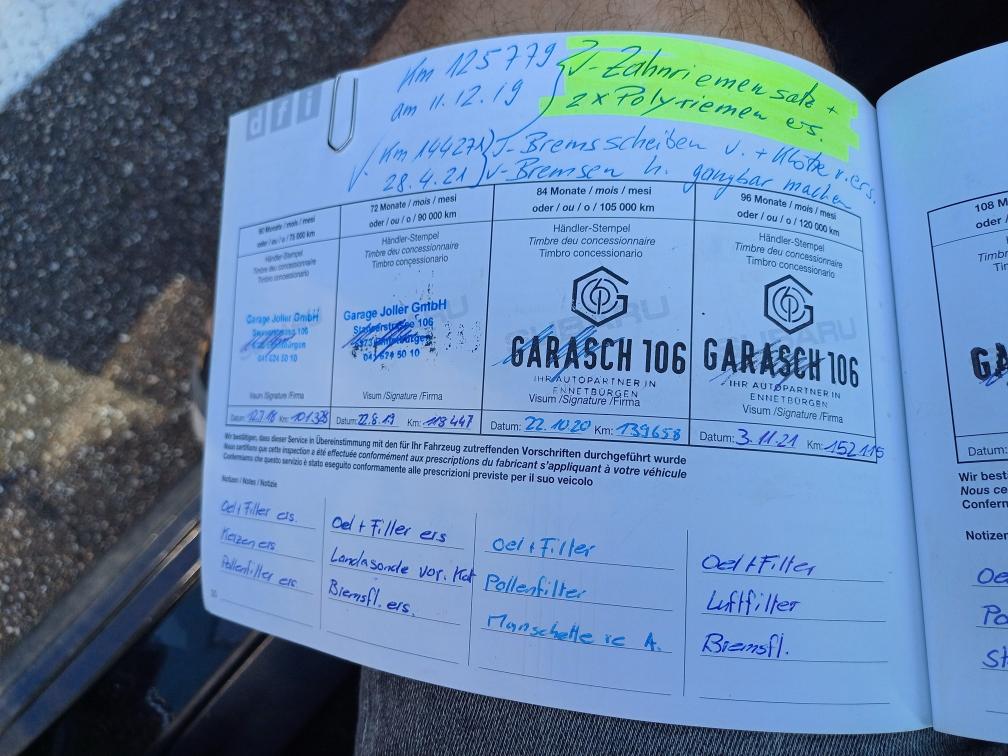 Km 125779
am 11.12.19
Zahnriemensatz +
2x Polyriemen ers.
Km 144271
28.4.21
Bremsscheiben v. + Klötze v. ers.
Bremsen h. gangbar machen
60 Monate / mois / mesi
oder / ou / o / 75 000 km
Händler-Stempel
Timbre deu concessionnaire
Timbro concessionario
Garage Joller GmbH
106
041 624 50 10
Visum /Signature /Firma
Datum: 12.7.18 Km: 101328
72 Monate / mois / mesi
oder / ou / o / 90 000 km
Händler-Stempel
Timbre deu concessionnaire
Timbro concessionario
Garage Joller GmbH
106
041 624 50 10
Visum /Signature /Firma
Datum: 22.8.19 Km: 118447
84 Monate / mois / mesi
oder / ou / o / 105 000 km
Händler-Stempel
Timbre deu concessionnaire
Timbro concessionario
SUBARU
GARASCH 106
IHR AUTOPARTNER IN
ENNETBÜRGEN
Visum /Signature /Firma
Datum: 22.10.20 Km: 139658
96 Monate / mois / mesi
oder / ou / o / 120 000 km
Händler-Stempel
Timbre deu concessionnaire
Timbro concessionario
SUBARU
GARASCH 106
IHR AUTOPARTNER IN
ENNETBÜRGEN
Visum /Signature /Firma
Datum: 3.11.21 Km: 152115
Wir bestätigen, dass dieser Service in Übereinstimmung mit den für Ihr Fahrzeug zutreffenden Vorschriften durchgeführt wurde
Nous certifions que cette inspection a été effectuée conformément aux prescriptions du fabricant s'appliquant à votre véhicule
Confermiamo che questo servizio è stato eseguito conformemente alle prescrizioni previste per il suo veicolo
Notizen / Notes / Notizie
Oel + Filter ers.
Kerzen ers
Pollenfilter ers
Oel + Filter ers
Landasonde vor. Kat
Bremsfl. ers.
Oel + Filter
Pollenfilter
Manschette re A.
Oel + Filter
Luftfilter
Bremsfl.
108 M
oder /
Datum:
Wir best
Nous ce
Conferm
Notizen
Oe
Po
St